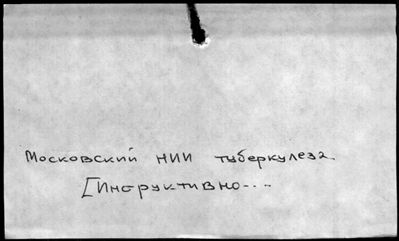 Московский НИИ туберкулеза.
[Инструктивно-...